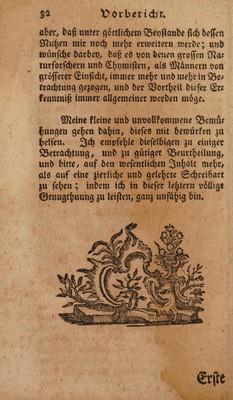 32 Vorbericht.
aber, daß unter göttlichem Beystande sich dessen
Nutzen mir noch mehr erweitern werde; und
wünsche darbey, daß es von denen grossen Na-
turforschern und Chymisten, als Männern von
grösserer Einsicht, immer mehr und mehr in Be-
trachtung gezogen, und der Vortheil dieser Er-
kenntniß immer allgemeiner werden möge.
Meine kleine und unvollkommene Bemü-
hungen gehen dahin, dieses mit bewürken zu
helfen. Ich empfehle dieselbigen zu einiger
Betrachtung, und zu gütiger Beurtheilung,
und bitte, auf den wesentlichen Inhalt mehr,
als auf eine zierliche und gelehrte Schreibart
zu sehen; indem ich in dieser letztern völlige
Genugthuung zu leisten, ganz unfähig bin.
Erste